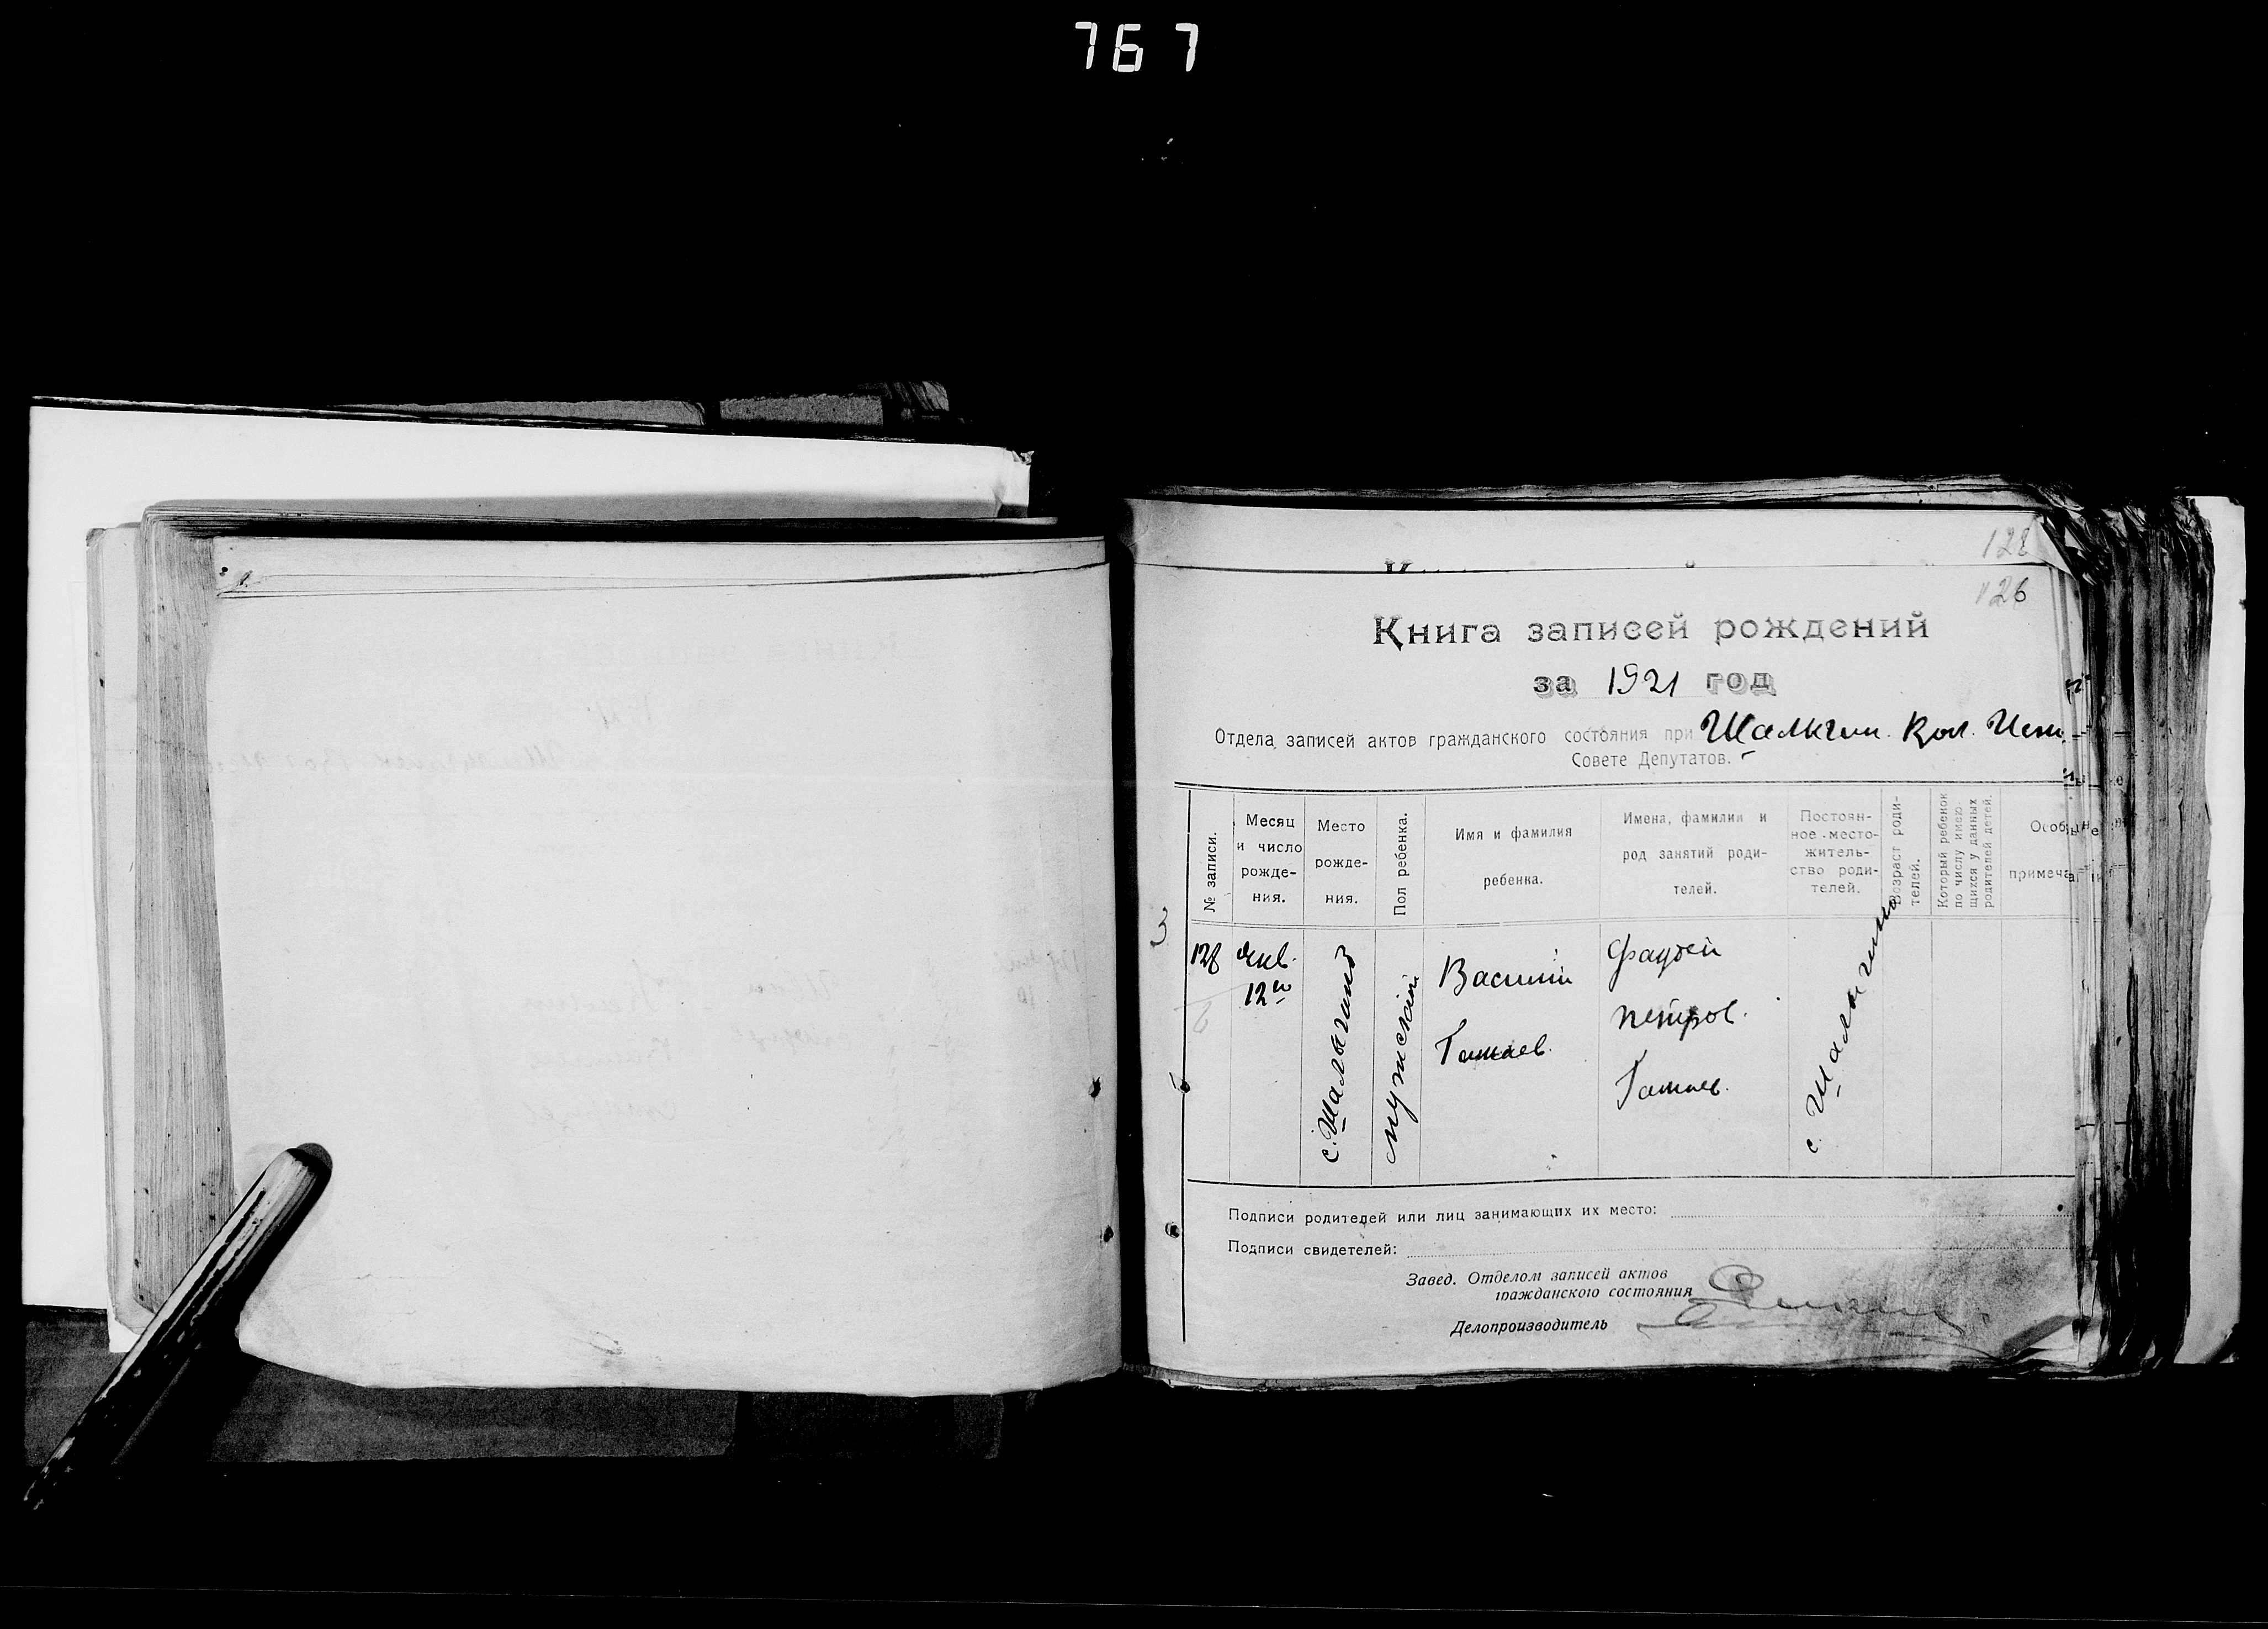 767
128
126
Книга записей рождений
за 1921 год
Отдела записей актов гражданского состояния при Шалкгин. Вол. Исп.
Совете Депутатов.
№ записи.
Месяц
и число
рожде-
ния.
Место
рожде-
ния.
Пол ребенка.
Имя и фамилия
ребенка.
Имена, фамилии и
род занятий роди-
телей.
Постоян-
ное место-
житель-
ство роди-
телей.
Возраст роди-
телей.
Который ребенок
по числу имею-
щихся у данных
родителей детей.
128
Янв.
12го
мужской
Василий
Гамаев.
Фадей
Петров.
Гамаев.
Подписи родителей или лиц занимающих их место:
Подписи свидетелей:
Завед. Отделом записей актов
гражданского состояния
Делопроизводитель